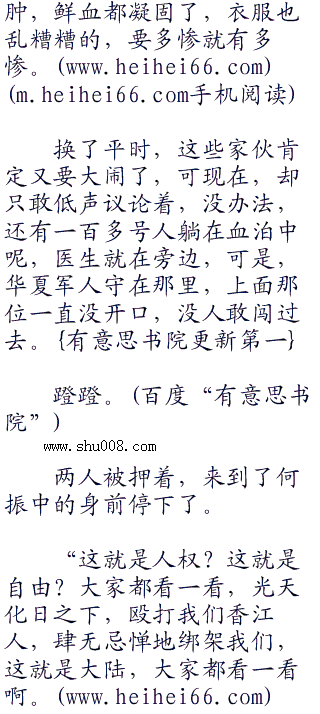 肿，鲜血都凝固了，衣服也
乱糟糟的，要多惨就有多
惨。(www.heihei66.com)
(m.heihei66.com手机阅读)
换了平时，这些家伙肯
定又要大闹了，可现在，却
只敢低声议论着，没办法，
还有一百多号人躺在血泊中
呢，医生就在旁边，可是，
华夏军人守在那里，上面那
位一直没开口，没人敢闯过
去。{有意思书院更新第一}
蹬蹬。(百度“有意思书
院”)
www.shu008.com
两人被押着，来到了何
振中的身前停下了。
“这就是人权？这就是
自由？大家都看一看，光天
化日之下，殴打我们香江
人，肆无忌惮地绑架我们，
这就是大陆，大家都看一看
啊。(www.heihei66.com)